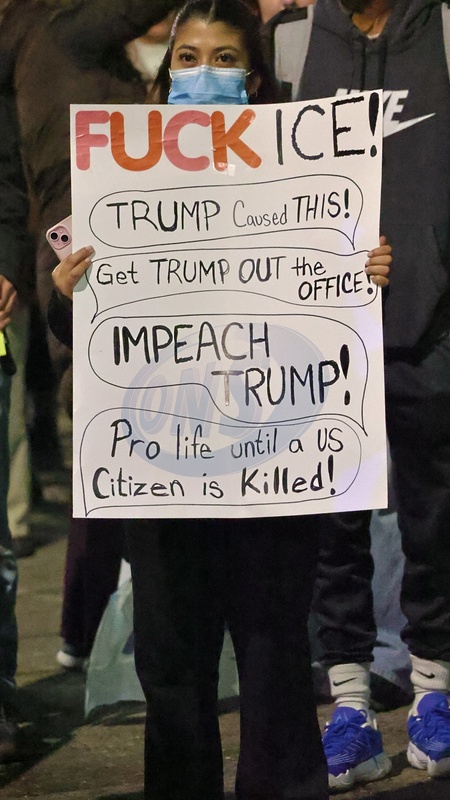 FUCK ICE!
TRUMP Caused THIS!
Get TRUMP OUT the
OFFICE!
IMPEACH
TRUMP!
Pro life until a US
Citizen is Killed!
NIKE